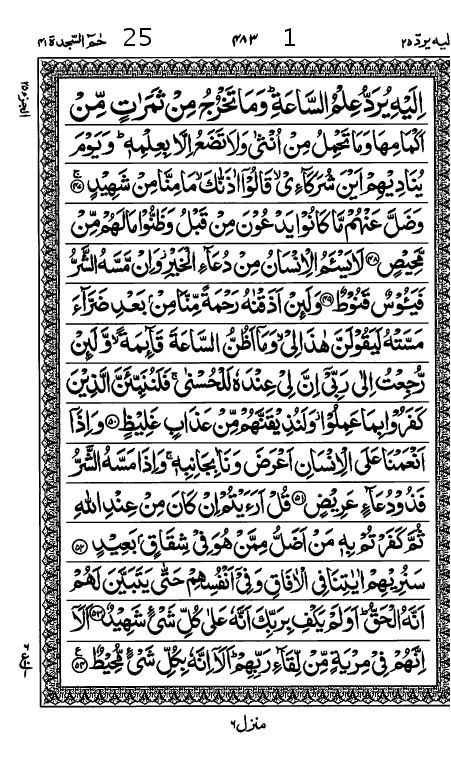 الیه یردّ ۲۵ 1 ۴۸۳ 25 حٰم السّجدة ۴۱
الجزء ۲۵
اِلَيْهِ يُرَدُّ عِلْمُ السَّاعَةِ ؕ وَمَا تَخْرُجُ مِنْ ثَمَرٰتٍ مِّنْ
اَكْمَامِهَا وَمَا تَحْمِلُ مِنْ اُنْثٰى وَلَا تَضَعُ اِلَّا بِعِلْمِهٖ ؕ وَيَوْمَ
يُنَادِيْهِمْ اَيْنَ شُرَكَآءِيْ ۙ قَالُوْۤا اٰذَنّٰكَ ۙ مَا مِنَّا مِنْ شَهِيْدٍ ۚ ﴿۴۷﴾
وَضَلَّ عَنْهُمْ مَّا كَانُوْا يَدْعُوْنَ مِنْ قَبْلُ وَظَنُّوْا مَا لَهُمْ مِّنْ
مَّحِيْصٍ ﴿۴۸﴾ لَا يَسْـَٔمُ الْاِنْسَانُ مِنْ دُعَآءِ الْخَيْرِ ؗ وَاِنْ مَّسَّهُ الشَّرُّ
فَيَـُٔوْسٌ قَنُوْطٌ ﴿۴۹﴾ وَلَئِنْ اَذَقْنٰهُ رَحْمَةً مِّنَّا مِنْۢ بَعْدِ ضَرَّآءَ
مَسَّتْهُ لَيَقُوْلَنَّ هٰذَا لِيْ ۙ وَمَاۤ اَظُنُّ السَّاعَةَ قَآئِمَةً ۙ وَّلَئِنْ
رُّجِعْتُ اِلٰى رَبِّيْۤ اِنَّ لِيْ عِنْدَهٗ لَلْحُسْنٰى ۚ فَلَنُنَبِّئَنَّ الَّذِيْنَ
كَفَرُوْا بِمَا عَمِلُوْا ؗ وَلَنُذِيْقَنَّهُمْ مِّنْ عَذَابٍ غَلِيْظٍ ﴿۵۰﴾ وَاِذَاۤ
اَنْعَمْنَا عَلَى الْاِنْسَانِ اَعْرَضَ وَنَاٰ بِجَانِبِهٖ ۚ وَاِذَا مَسَّهُ الشَّرُّ
فَذُوْ دُعَآءٍ عَرِيْضٍ ﴿۵۱﴾ قُلْ اَرَءَيْتُمْ اِنْ كَانَ مِنْ عِنْدِ اللّٰهِ
ثُمَّ كَفَرْتُمْ بِهٖ مَنْ اَضَلُّ مِمَّنْ هُوَ فِيْ شِقَاقٍۭ بَعِيْدٍ ﴿۵۲﴾
سَنُرِيْهِمْ اٰيٰتِنَا فِي الْاٰفَاقِ وَفِيْۤ اَنْفُسِهِمْ حَتّٰى يَتَبَيَّنَ لَهُمْ
اَنَّهُ الْحَقُّ ؕ اَوَلَمْ يَكْفِ بِرَبِّكَ اَنَّهٗ عَلٰى كُلِّ شَيْءٍ شَهِيْدٌ ﴿۵۳﴾ اَلَاۤ
اِنَّهُمْ فِيْ مِرْيَةٍ مِّنْ لِّقَآءِ رَبِّهِمْ ؕ اَلَاۤ اِنَّهٗ بِكُلِّ شَيْءٍ مُّحِيْطٌ ﴿۵۴﴾
منزل ۶